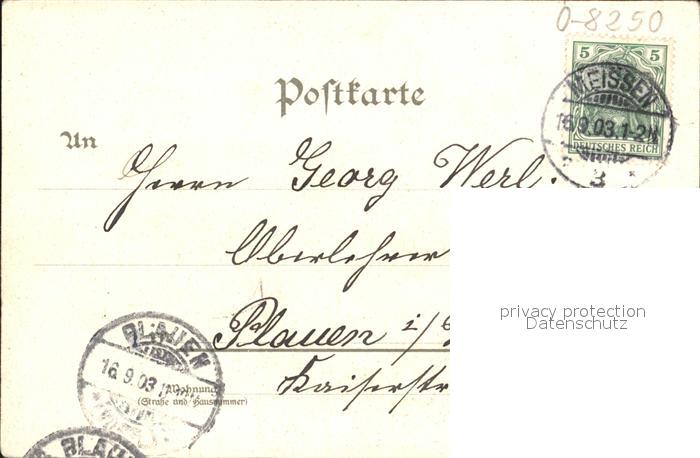 0-8250
5 5
DEUTSCHES REICH
MEISSEN
16.9.03.1-2N
3
Postkarte
An
Herrn Georg Werl.
Oberlehrer
Plauen i/
privacy protection
Datenschutz
Kaiserstr
Wohnung
(Straße und Hausnummer)
PLAUEN
16.9.03
PLAUEN